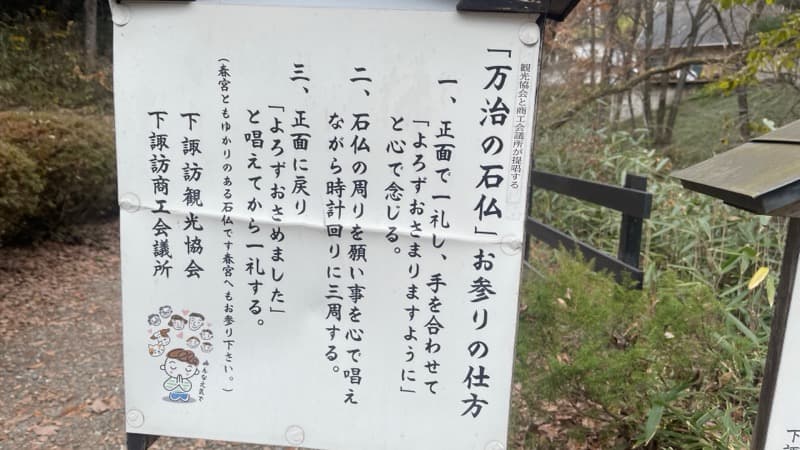 観光協会と商工会議所が提唱する
「万治の石仏」お参りの仕方
一、正面で一礼し、手を合わせて
「よろずおさまりますように」
と心で念じる。
二、石仏の周りを願い事を心で唱え
ながら時計回りに三周する。
三、正面に戻り
「よろずおさめました」
と唱えてから一礼する。
(春宮ともゆかりのある石仏です春宮へもお参り下さい。)
下諏訪観光協会
下諏訪商工会議所
みんな元気で
下諏